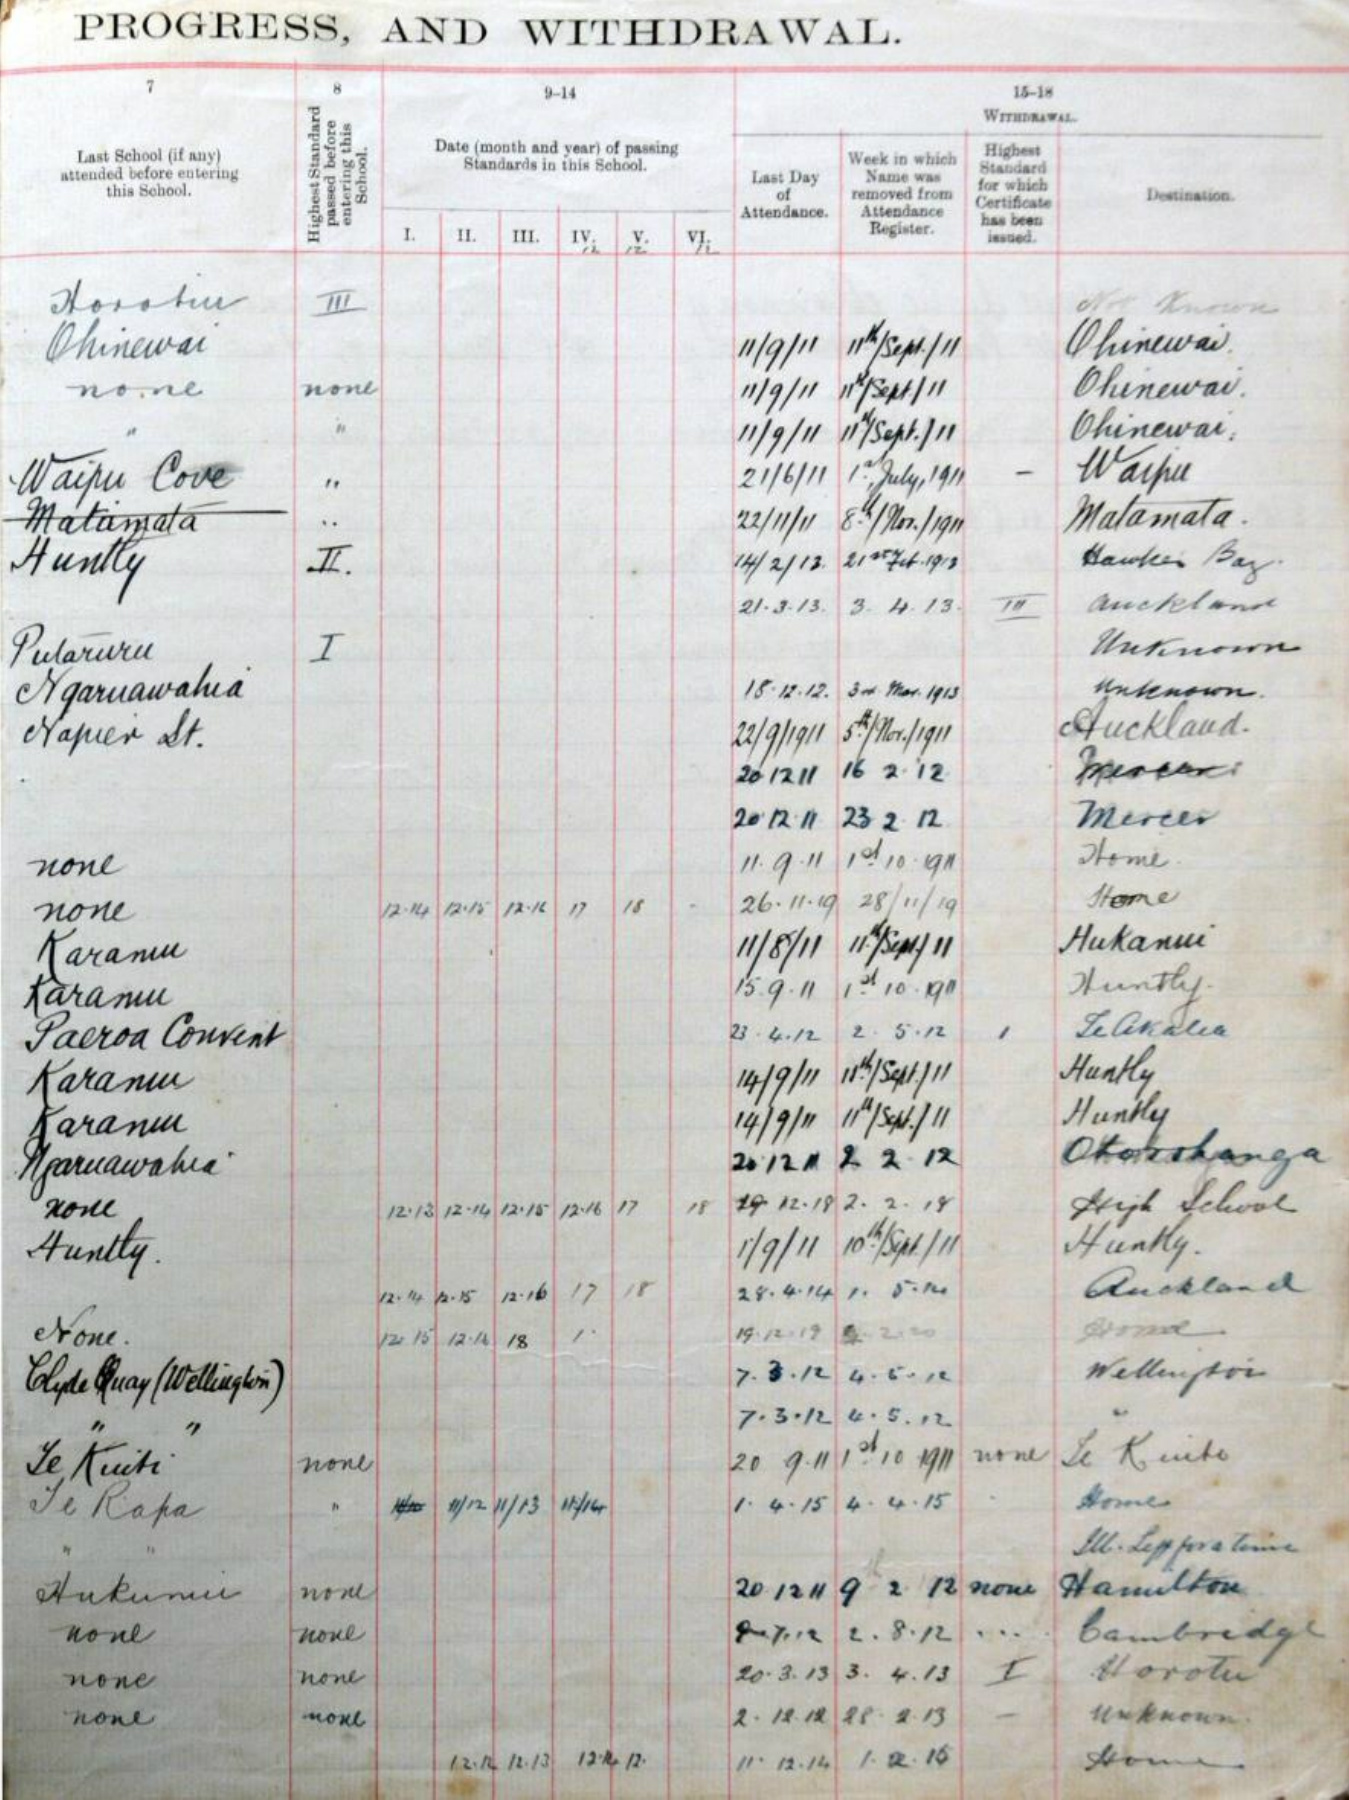 PROGRESS, AND WITHDRAWAL.
7 8 9–14 15–18
WITHDRAWAL.
Last School (if any) attended before entering this School.
Highest Standard passed before entering this School.
Date (month and year) of passing Standards in this School.
Last Day of Attendance.
Week in which Name was removed from Attendance Register.
Highest Standard for which Certificate has been issued.
Destination.
I. II. III. IV. V. VI.
12 12 12
Horotiu III Not Known
Ohinewai 11/9/11 11th/Sept./11 Ohinewai.
none none 11/9/11 11th/Sept/11 Ohinewai.
" " 11/9/11 11th/Sept./11 Ohinewai.
Waipu Cove " 21/6/11 1st July, 1911 – Waipu
Matamata " 22/11/11 8th/Nov./1911 Matamata.
Huntly II. 14/2/13. 21st Feb. 1913 Hawkes Bay.
21.3.13. 3. 4. 13. III Auckland
Putaruru I Unknown
Ngaruawahia 18.12.12. 3rd Mar. 1913 Unknown.
Napier St. 22/9/1911 5th/Nov./1911 Auckland.
20 12 11 16 2 12 Mercer
20.12.11 23 2 12 Mercer
none 11.9.11 1st 10.1911 Home.
none 12.14 12.15 12.16 17 18 - 26.11.19 28/11/19 Home
Karamu 11/8/11 11th/Sept/11 Hukanui
Karamu 15.9.11 1st 10.1911 Huntly.
Paeroa Convent 23.4.12 2 5.12 1 Te Akatea
Karamu 14/9/11 11th/Sept./11 Huntly
Karamu 14/9/11 11th/Sept./11 Huntly
Ngaruawahia 20 12 11 2 2 12 Otorohanga
none 12.13 12.14 12.15 12.16 17 18 12.18 2. 2. 18 High School
Huntly. 1/9/11 10th/Sept./11 Huntly.
12.14 12.15 12.16 17 18 28.4.14 1. 5.14 Auckland
None. 12.15 12.16 18 1 19.12.19 2.20 Home
Clyde Quay (Wellington) 7.3.12 4.5.12 Wellington
" " 7.3.12 4.5.12 "
Te Kuiti none 20 9.11 1st 10 1911 none Te Kuiti
Te Rapa " 11/12 11/13 11/14 1. 4.15 4. 4.15 Home
" " Ill. Left for a time
Hukanui none 20 12 11 9th 2 12 none Hamilton
none none 7.12 2. 8.12 .... Cambridge
none none 20.3.13 3. 4.13 I Horotiu
none none 2.12.12 28 2.13 – Unknown.
12.12 12.13 12.14 12. 11.12.14 1.2.15 Home